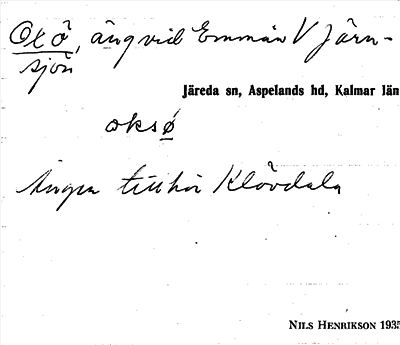 Ox ö, äng vid Emmån V Järn-
sjön
Järeda sn, Aspelands hd, Kalmar län
oksø
Ängen tillhör Klövdala
NILS HENRIKSON 1935